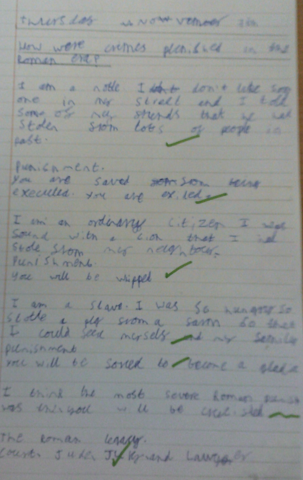 Thursday November 7th
How were crimes punished in the
Roman era?
I am a noble I didn't don't like som
one in my street and I told
some of my friends that he had
stolen from lots of people in
past.
punishment.
you are saved from being
executed. you are exiled.
I am an ordenary citizen I was
found with a coin that I had
stole from my neighbour.
Punishment.
you will be whipped
I am a slave. I was so hungry so
I stole a pig from a farm so that
I could feed myself and my family
punishment
you will be forsed to become a gladia
I think the most severe Roman punish
was you will be
The Roman legacy.
Court Judge Jury and Lawyer.